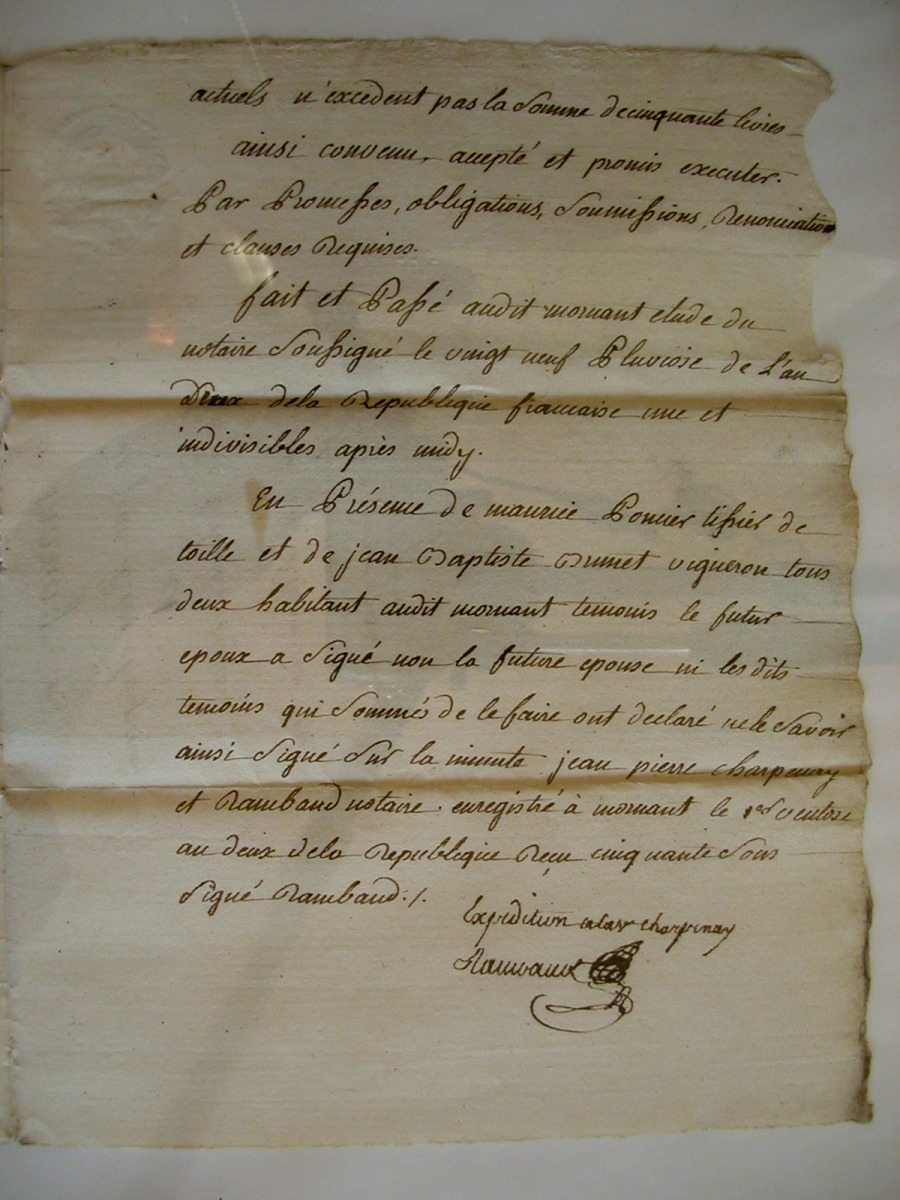 actuels n'excedent pas la Somme de cinquante livres
ainsi convenu, accepté et promis executer.
Par Promesses, obligations, Soumissions, Renonciation
et clauses Requises.
fait et Passé audit mornant etude du
notaire Soussigné le vingt neuf Pluviose de L'an
Deux dela Republique francaise une et
indivisibles après midy.
En Présence de maurice Poncier tissier de
toille et de jean Baptiste Brunet vigneron tous
deux habitant audit mornant temoins le futur
epoux a Signé non la future epouse ni les dits
temoins qui Sommés de le faire ont declaré ne le Savoir
ainsi Signé Sur la minute jean pierre charpenay
et Rambaud notaire. enregistré à mornant le 1er ventose
an deux dela Republique Recu cinquante Sous
Signé Rambaud ./.
Expedition charpenay
Rambaud